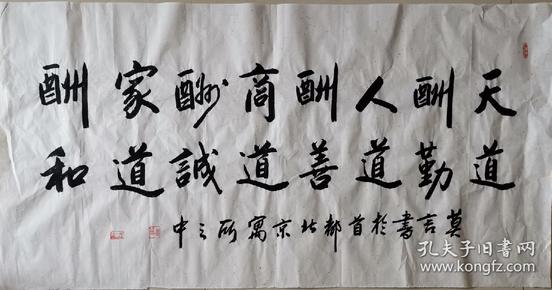 天道
酬勤
人道
酬善
商道
酬誠
家道
酬和
莫言書於首都北京寓所之中
孔夫子旧书网
www.kongfz.com